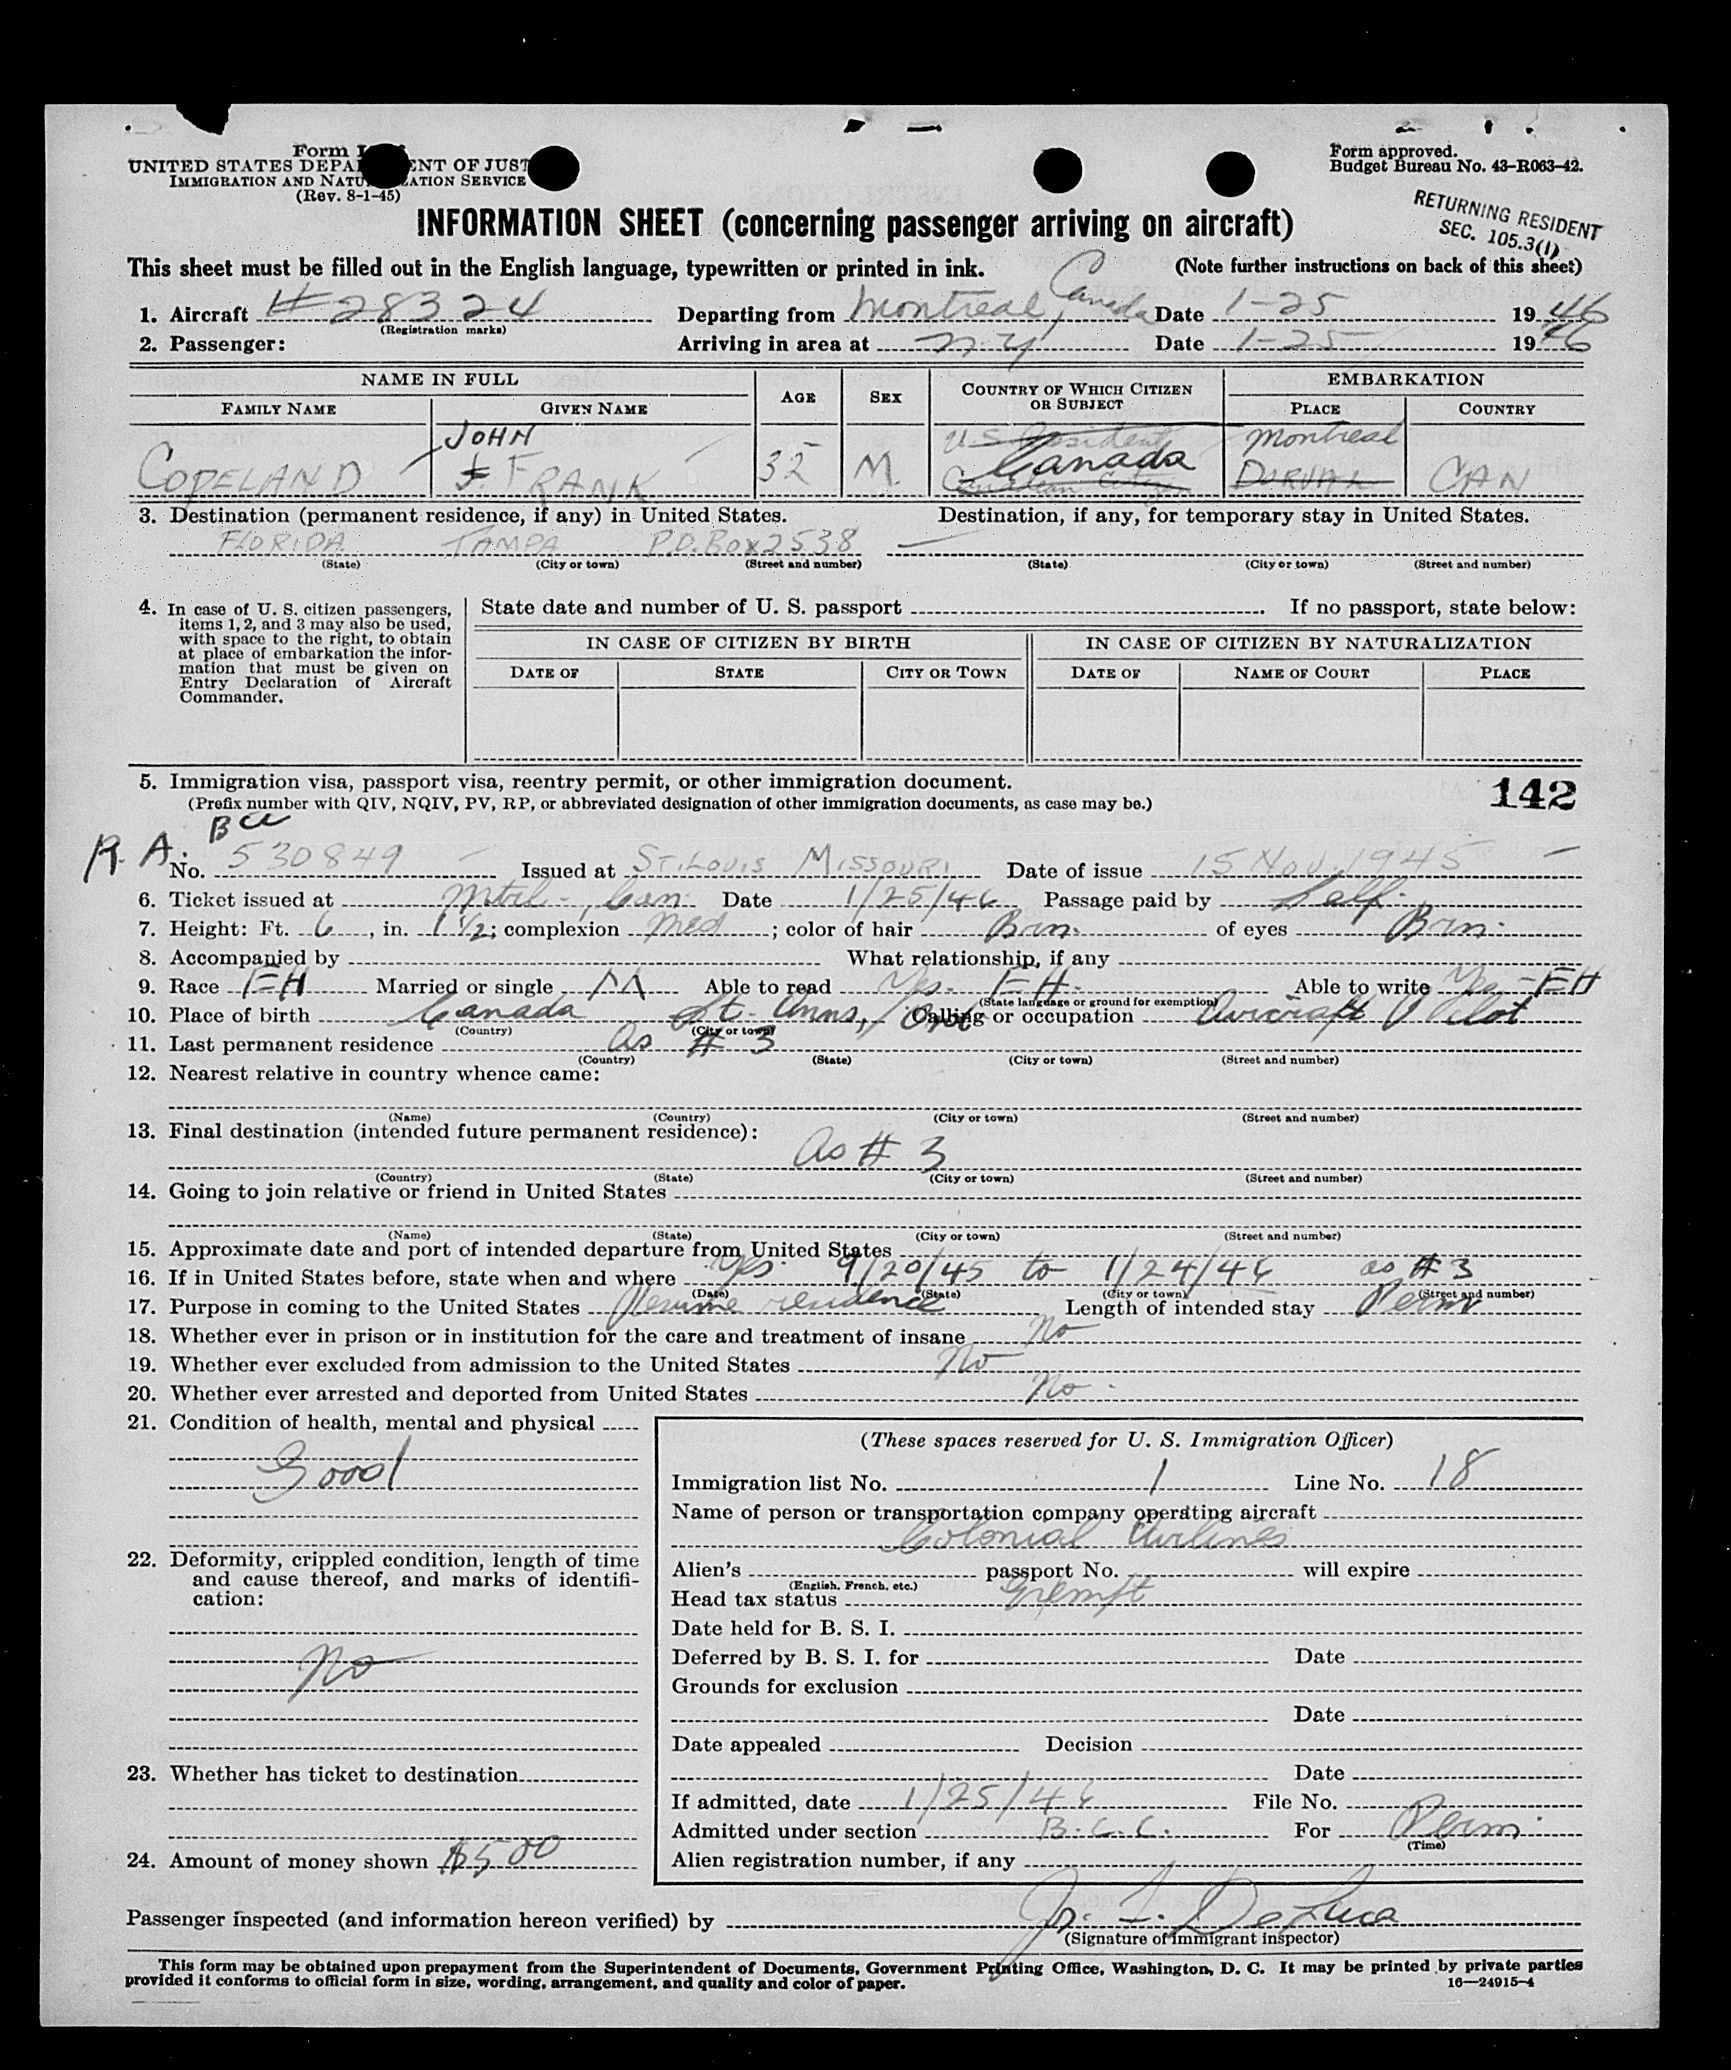 Form I
UNITED STATES DEPA ENT OF JUST
IMMIGRATION AND NATU ZATION SERVICE
(Rev. 8-1-45)
Form approved.
Budget Bureau No. 43-R063-42.
RETURNING RESIDENT
SEC. 105.3(1)
INFORMATION SHEET (concerning passenger arriving on aircraft)
This sheet must be filled out in the English language, typewritten or printed in ink. (Note further instructions on back of this sheet)
1. Aircraft #28324 Departing from Montreal, Canada Date 1-25 1946
(Registration marks)
2. Passenger: Arriving in area at N.Y. Date 1-25 1946
NAME IN FULL AGE SEX COUNTRY OF WHICH CITIZEN OR SUBJECT EMBARKATION
FAMILY NAME GIVEN NAME PLACE COUNTRY
JOHN U.S. Resident Montreal
COPELAND J. FRANK 32 M. Canada DORVAL CAN
Canadian Citizen
3. Destination (permanent residence, if any) in United States. Destination, if any, for temporary stay in United States.
FLORIDA TAMPA P.O. Box 2538 —
(State) (City or town) (Street and number) (State) (City or town) (Street and number)
4. In case of U. S. citizen passengers, items 1, 2, and 3 may also be used, with space to the right, to obtain at place of embarkation the information that must be given on Entry Declaration of Aircraft Commander.
State date and number of U. S. passport If no passport, state below:
IN CASE OF CITIZEN BY BIRTH IN CASE OF CITIZEN BY NATURALIZATION
DATE OF STATE CITY OR TOWN DATE OF NAME OF COURT PLACE
5. Immigration visa, passport visa, reentry permit, or other immigration document. 142
(Prefix number with QIV, NQIV, PV, RP, or abbreviated designation of other immigration documents, as case may be.)
R.A. BCC
No. 530849 Issued at ST. LOUIS MISSOURI Date of issue 15 Nov. 1945
6. Ticket issued at Mtrl-, Can. Date 1/25/46 Passage paid by Self.
7. Height: Ft. 6, in. 1 1/2; complexion Med; color of hair Brn. of eyes Brn.
8. Accompanied by What relationship, if any
9. Race EH Married or single M Able to read Yes. EH. Able to write Yes - EH
(State language or ground for exemption)
10. Place of birth Canada St. Anns, Ont Calling or occupation Aircraft Pilot
(Country) (City or town)
11. Last permanent residence As #3
(Country) (State) (City or town) (Street and number)
12. Nearest relative in country whence came:
(Name) (Country) (City or town) (Street and number)
13. Final destination (intended future permanent residence):
As # 3
(Country) (State) (City or town) (Street and number)
14. Going to join relative or friend in United States
(Name) (State) (City or town) (Street and number)
15. Approximate date and port of intended departure from United States
16. If in United States before, state when and where Yes. 9/20/45 to 1/24/46 as #3
(Date) (State) (City or town) (Street and number)
17. Purpose in coming to the United States Resume residence Length of intended stay Perm
18. Whether ever in prison or in institution for the care and treatment of insane No
19. Whether ever excluded from admission to the United States No
20. Whether ever arrested and deported from United States No.
21. Condition of health, mental and physical
Good
22. Deformity, crippled condition, length of time
and cause thereof, and marks of identifi-
cation:
No
23. Whether has ticket to destination
24. Amount of money shown $500
(These spaces reserved for U. S. Immigration Officer)
Immigration list No. 1 Line No. 18
Name of person or transportation company operating aircraft
Colonial Airlines
Alien's passport No. will expire
(English, French, etc.)
Head tax status Exempt
Date held for B. S. I.
Deferred by B. S. I. for Date
Grounds for exclusion
Date
Date appealed Decision
Date
If admitted, date 1/25/46 File No.
Admitted under section B.C.C. For Perm.
(Time)
Alien registration number, if any
Passenger inspected (and information hereon verified) by De Luca
(Signature of immigrant inspector)
This form may be obtained upon prepayment from the Superintendent of Documents, Government Printing Office, Washington, D. C. It may be printed by private parties
provided it conforms to official form in size, wording, arrangement, and quality and color of paper. 16—24915-4